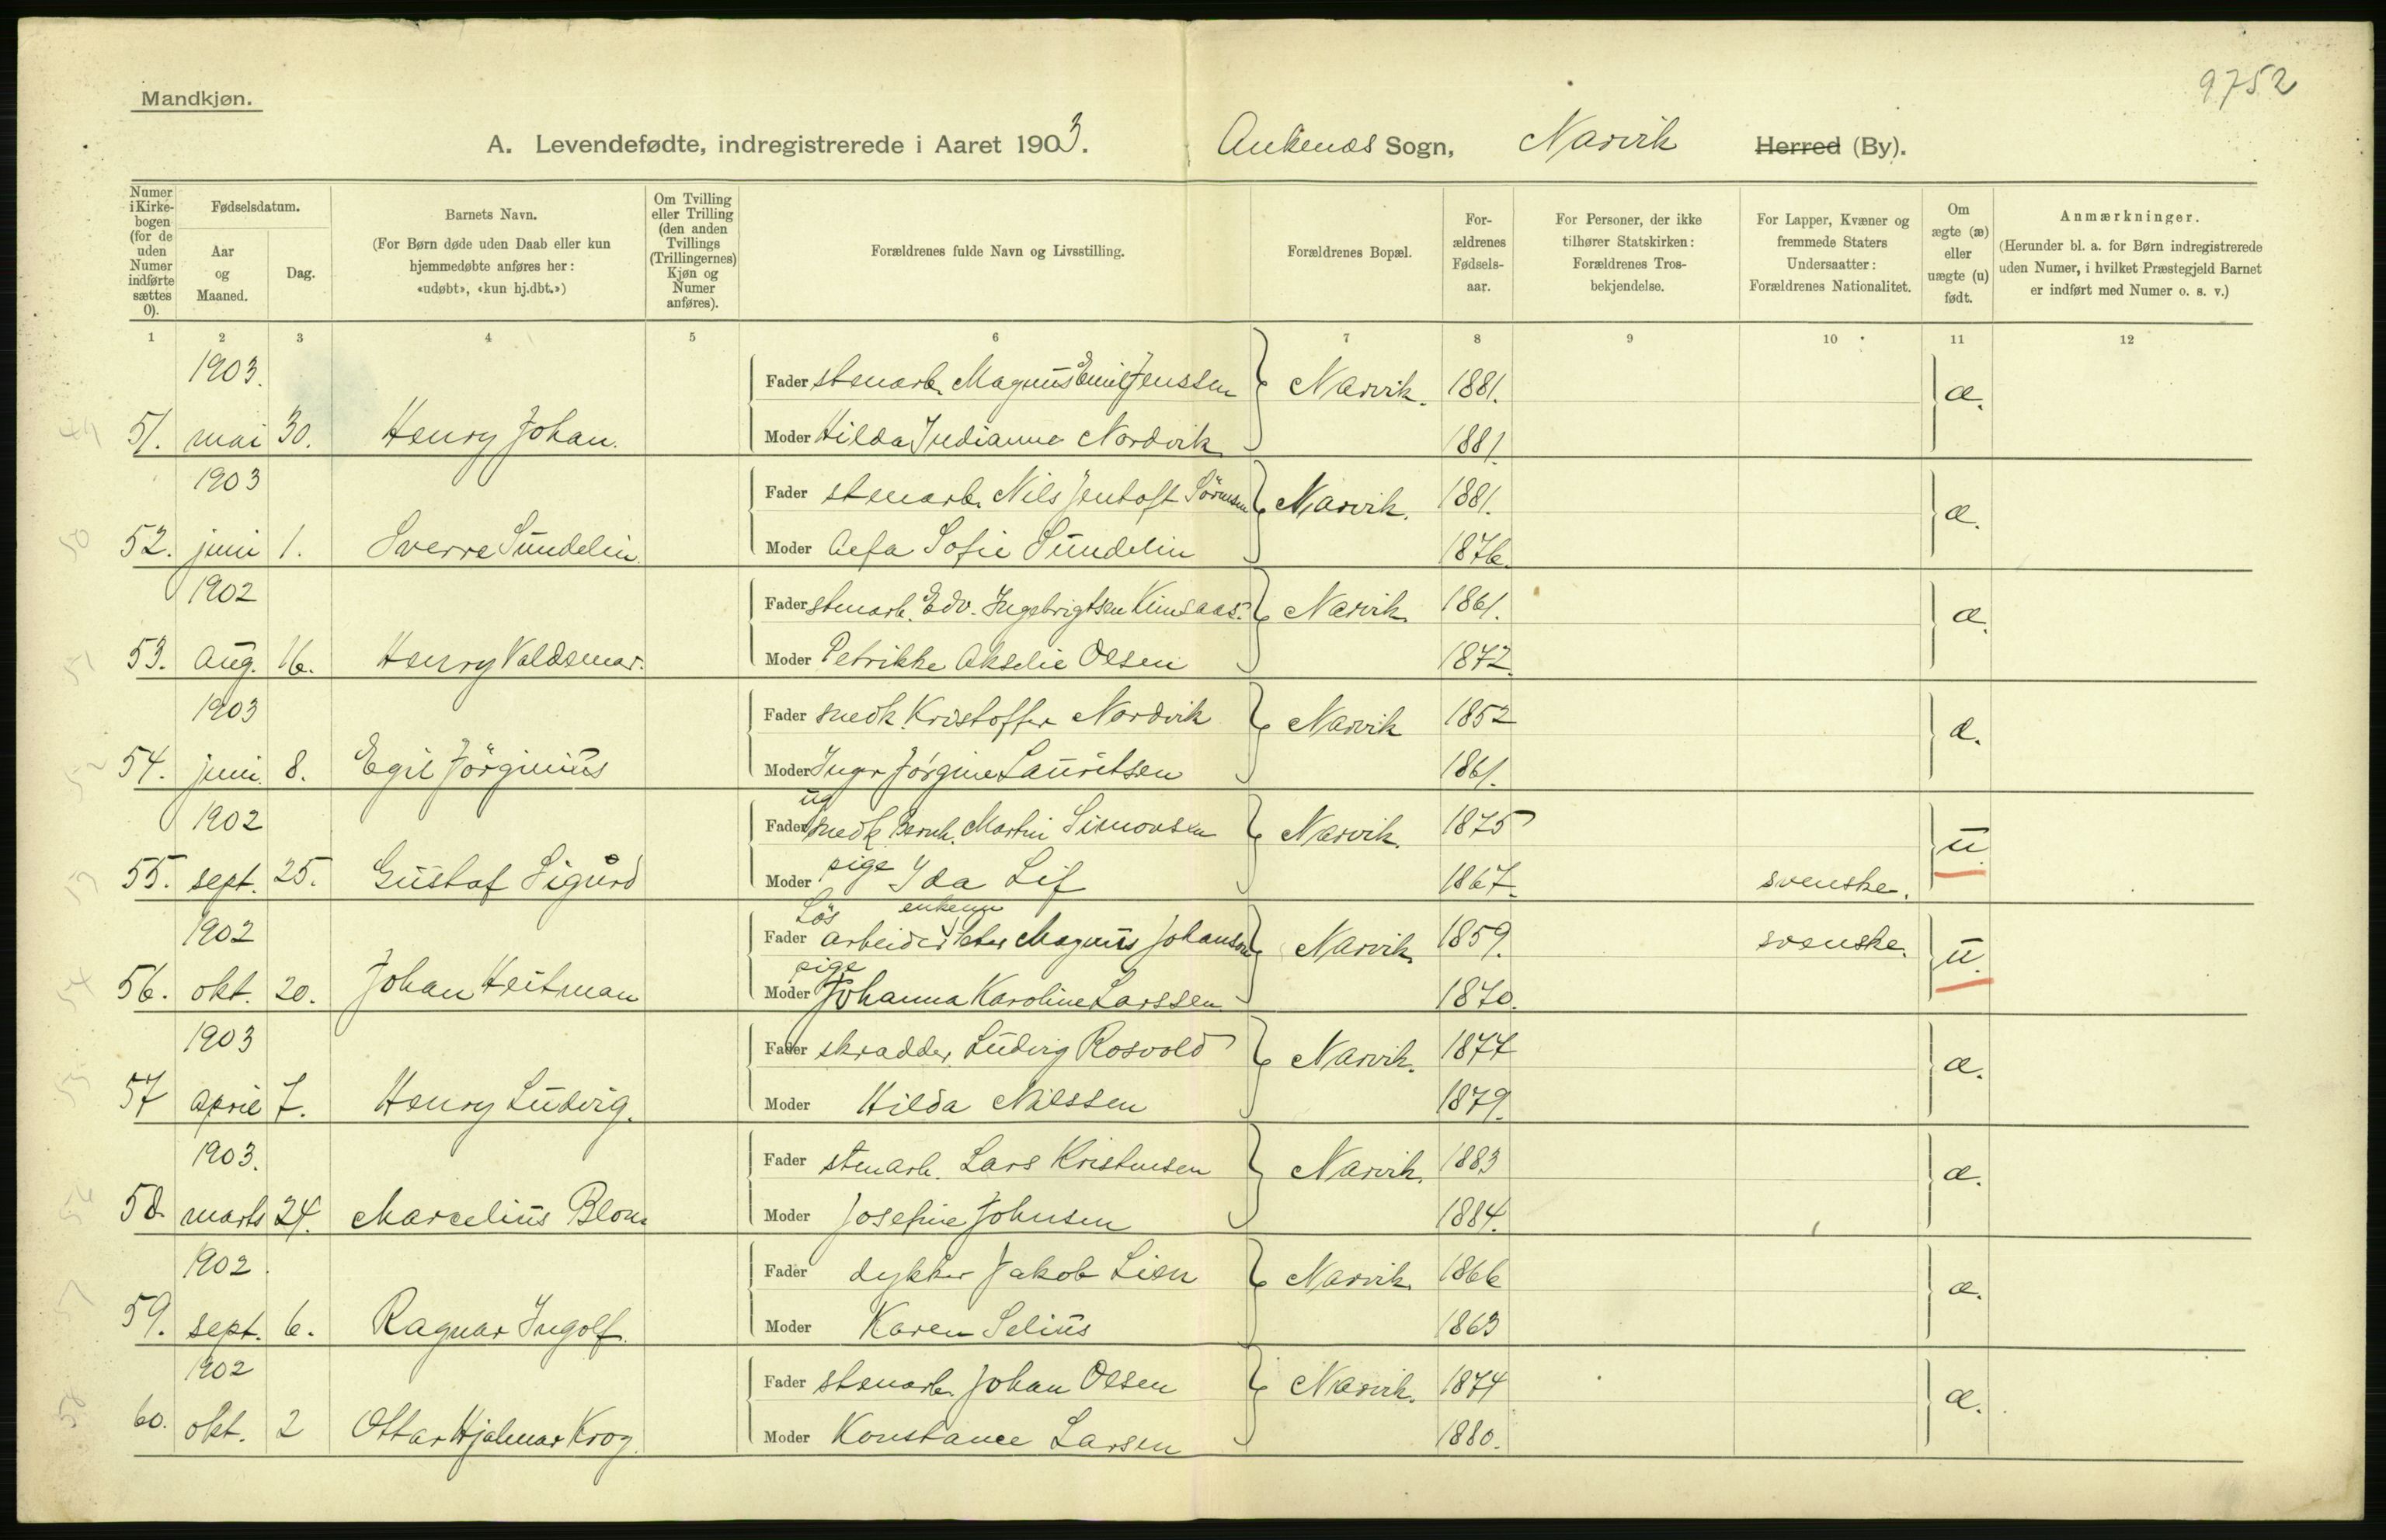 9752
Mandkjøn.
A. Levendefødte, indregistrerede i Aaret 1903. Ankenæs Sogn, Narvik Herred (By).
Numer i Kirkebogen (for de uden Numer indførte sættes 0).
Fødselsdatum.
Aar og Maaned.
Dag.
Barnets Navn.
(For Børn døde uden Daab eller kun hjemmedøbte anføres her: «udøbt», «kun hj.dbt.»)
Om Tvilling eller Trilling (den anden Tvillings (Trillingernes) Kjøn og Numer anføres).
Forældrenes fulde Navn og Livsstilling.
Forældrenes Bopæl.
Forældrenes Fødselsaar.
For Personer, der ikke tilhører Statskirken: Forældrenes Trosbekjendelse.
For Lapper, Kvæner og fremmede Staters Undersaatter: Forældrenes Nationalitet.
Om ægte (æ) eller uægte (u) født.
Anmærkninger.
(Herunder bl. a. for Børn indregistrerede uden Numer, i hvilket Præstegjeld Barnet er indført med Numer o. s. v.)
1 2 3 4 5 6 7 8 9 10 11 12
1903. Fader stenarb. Magnus Emil Jenssen Narvik. 1881. æ.
49 51. mai 30. Henry Johan. Moder Hilda Indianne Nordvik 1881.
1903 Fader stenarb. Nils Jentoft Sörensen Narvik. 1881. æ.
50 52. juni 1. Sverre Sundelin. Moder Sofie Sundelin 1876.
1902 Fader stenarb. Edv. Ingebrigtsen Narvik. 1861. æ.
51 53. aug. 16. Henry Valdemar. Moder Petrikke Akselie Olsen 1872.
1903 Fader snedk. Kristoffer Nordvik Narvik 1852 æ.
52 54. juni. 8. Egil Jörginius Moder Inger Jörgine Lauritsen 1861.
1902 Fader ug snedk Bernh. Martin Simonsen Narvik. 1875 u
53 55. sept. 25. Gustaf Sigurd Moder pige Ida Lif 1867. svenske.
1902 Fader Lös arbeider enkem Peter Magnus Johanson Narvik. 1859. svenske. u.
54 56. okt. 20. Johan Heitman Moder pige Johanna Karoline Larssen 1870.
1903 Fader skrædder Ludvig Rosvold Narvik. 1877 æ.
55 57 april 7. Henry Ludvig. Moder Hilda Nilssen 1879.
1903. Fader stenarb. Lars Kristensen Narvik. 1883 æ.
56 58. marts 24. Marcelius Blom Moder Josefine Johnsen 1884.
1902. Fader dykker Jakob Lien Narvik. 1866 æ.
57 59. sept. 6. Ragnar Ingolf. Moder Karen Selius 1863
1902 Fader stenarb. Johan Olsen Narvik. 1874 æ.
58 60. okt. 2 Ottar Hjalmar Krog. Moder Konstance Larsen 1880.